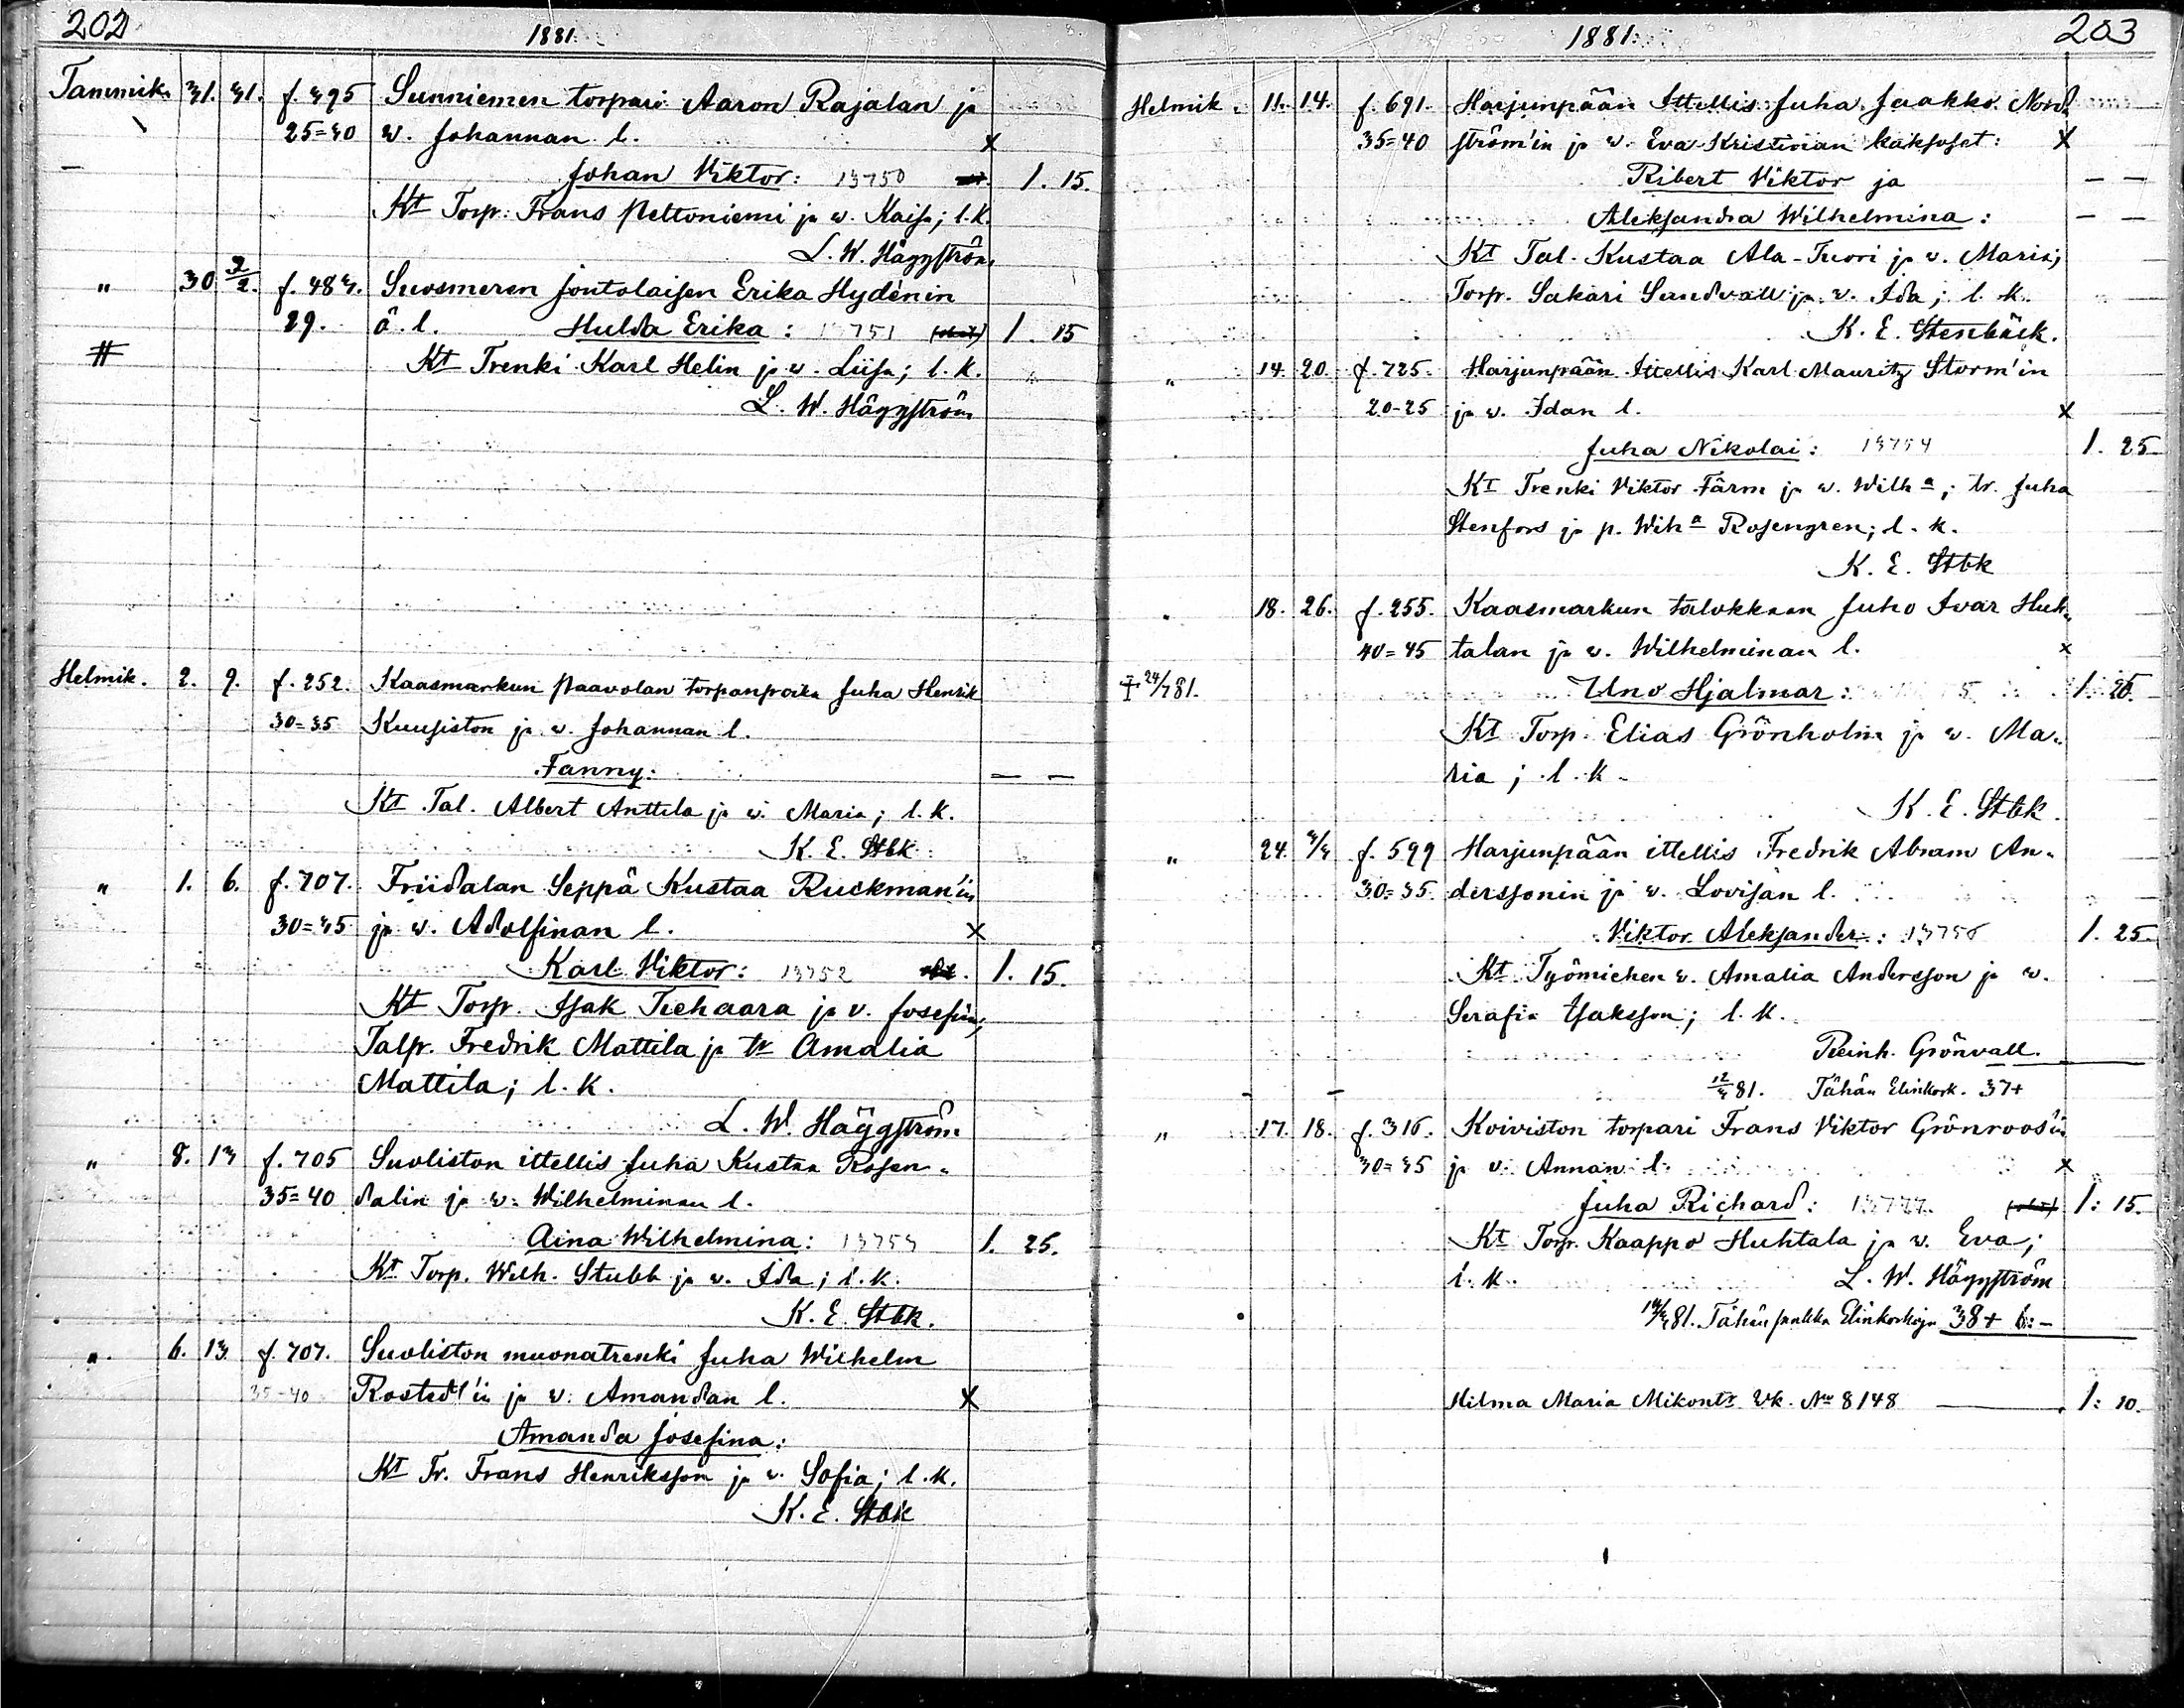 202
1881
Tammik. 31. 31. f. 395 Sunniemen torpari Aaron Rajalan ja
25=30 w. Johannan l. x
Johan Viktor: 13750 1. 15.
Kt Torp. Frans Peltoniemi ja w. Kaisa; l.k.
L. W. Häggström
" 30 3/2. f. 483. Suosmeren joutolaisen Erika Hydénin
29. ä. l. Hulda Erika: 13751 1. 15
Kt Trenki Karl Helin ja w. Liisa; l. k.
L. W. Häggström
Helmik. 2. 9. f. 252. Kaasmarkun Paavolan torpanpoika Juha Henrik
30=35 Kuusiston ja w. Johannan l.
Fanny: — —
Kt Tal. Albert Anttila ja w. Maria; l. k.
K. E. Stbk
" 1. 6. f. 707. Friidalan Seppä Kustaa Ruckman'in
30=35 ja w. Adolfinan l. x
Karl Viktor: 13752 1. 15.
Kt Torp. Isak Tiehaara ja v. Josefin;
Talp. Fredrik Mattila ja tr Amalia
Mattila; l. k.
L. W. Häggström
" 8. 13 f. 705 Suoliston ittellis Juha Kustaa Rosen-
35=40 dalin ja w. Wilhelminan l.
Aina Wilhelmina: 13753 1. 25.
Kt Torp. Wilh. Stubb ja w. Ida; l. k.
K. E. Stbk.
" 6. 13 f. 707. Suoliston muonatrenki Juha Wilhelm
35-40 Rostedt'in ja w. Amandan l. x
Amanda Josefina:
Kt Tr. Frans Henriksson ja w. Sofia; l. k.
K. E. Stbk
1881.
203
Helmik. 11. 14. f. 691. Harjunpään Ittellis Juha Jaakko Nord-
35=40 ström'in ja w. Eva Kristinan kaksoset: x
Ribert Viktor ja — —
Aleksandra Wilhelmina: — —
Kt Tal. Kustaa Ala-Tuori ja w. Maria;
Torp. Sakari Sundvall ja w. Ida; l. k.
K. E. Stenbäck.
" 14. 20. f. 725. Harjunpään Ittellis Karl Mauritz Storm'in
20-25 ja w. Idan l. x
Juha Nikolai: 13754 1. 25
Kt Trenki Viktor Färm ja w. Wilha; tr. Juha
Stenfors ja p. Wiha Rosengren; l. k.
K. E. Stbk
" 18. 26. f. 255. Kaasmarkun talokkaan Juho Ivar Huh-
40=45 talan ja w. Wilhelminan l. x
24/7 81. Uno Hjalmar: 5 1. 25.
Kt Torp. Elias Grönholm ja w. Ma-
ria; l. k.
K. E. Stbk.
" 24. 3/3 f. 599 Harjunpään ittellis Fredrik Abram An-
30=35. derssonin ja w. Lovisan l.
Viktor Aleksander: 13756 1. 25
Kt Työmiehen w. Amalia Andersson ja w.
Serafia Isaksson; l. k.
Reinh. Grönvall.
12/3 81. Tähän Elinkork. 37+
" 17. 18. f. 316. Koiviston torpari Frans Viktor Grönroos'in
30=35 ja v. Annan l. x
Juha Richard: 1: 15.
Kt Torp. Kaappo Huhtala ja w. Eva;
l. k. L. W. Häggström
81. Tähän 38+ 6:-
Hilma Maria Mikontr Vk. No 8148 1: 10.